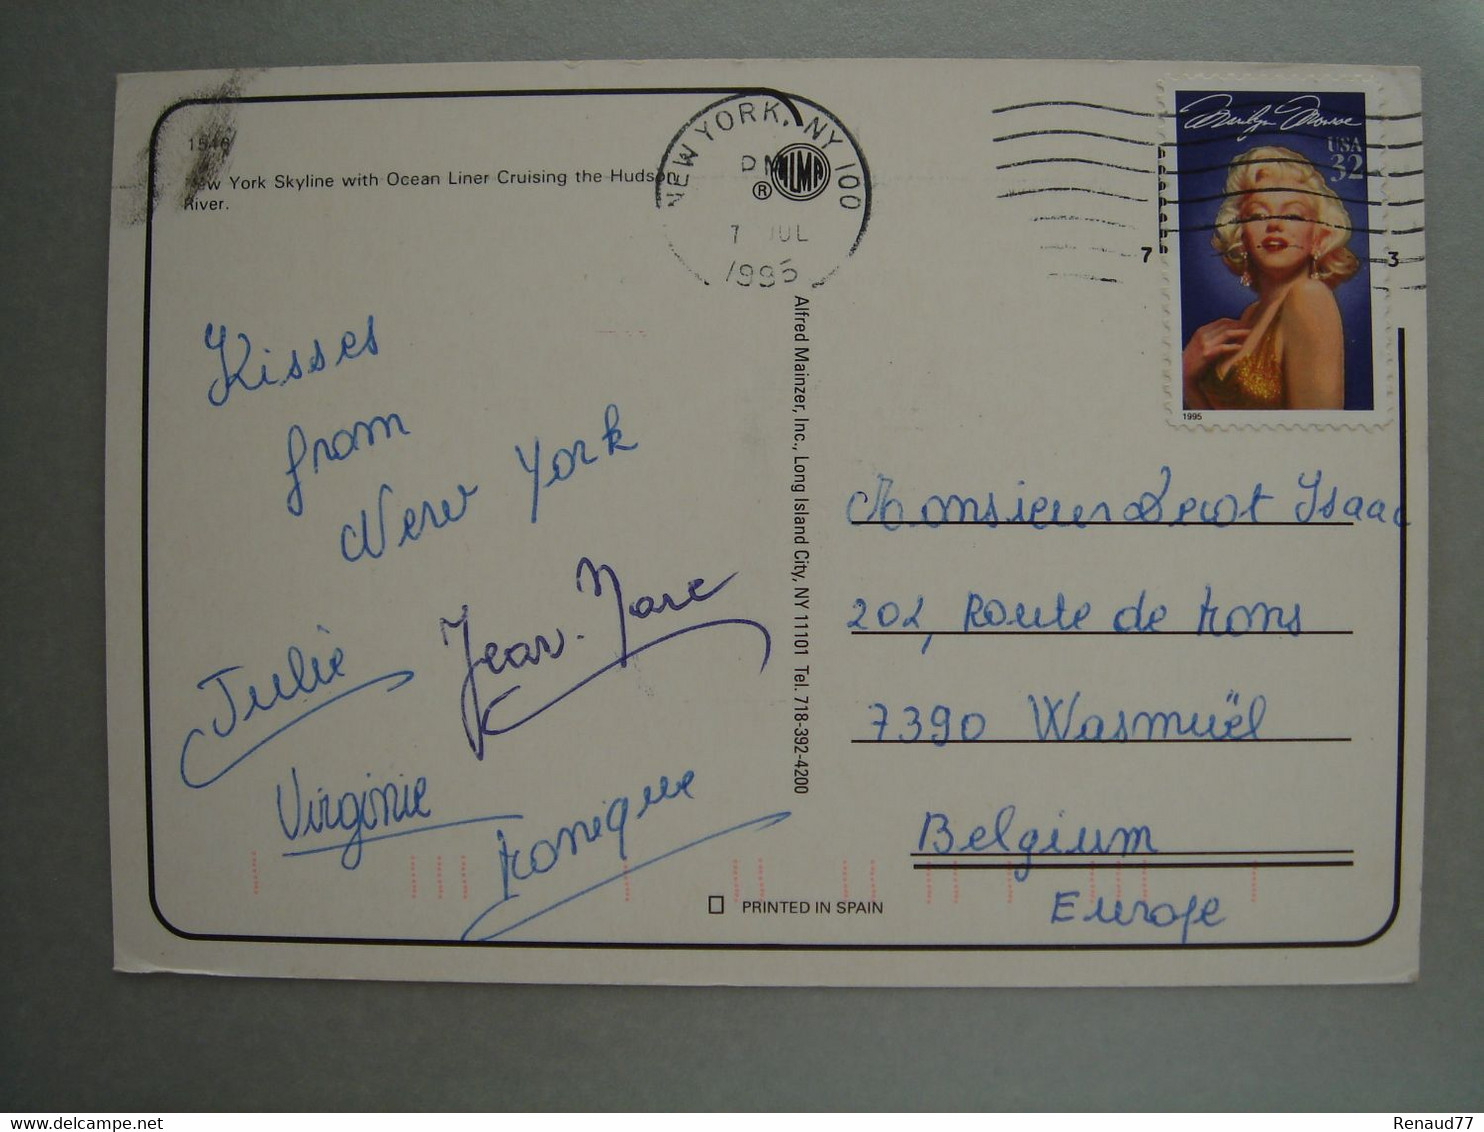 New York Skyline with Ocean Liner Cruising the Hudson
River.
NEW YORK, NY 100
PM
®
JUL
1995
Marilyn Monroe
USA
32
1995
7
3
Kisses
from
New York
Julie
Jean-Marc
Virginie
Monique
Alfred Mainzer, Inc., Long Island City, NY 11101 Tel. 718-392-4200
Monsieur Isaac
202, Route de Mons
7390 Wasmuël
Belgium
Europe
PRINTED IN SPAIN
Renaud77
delcampe.net